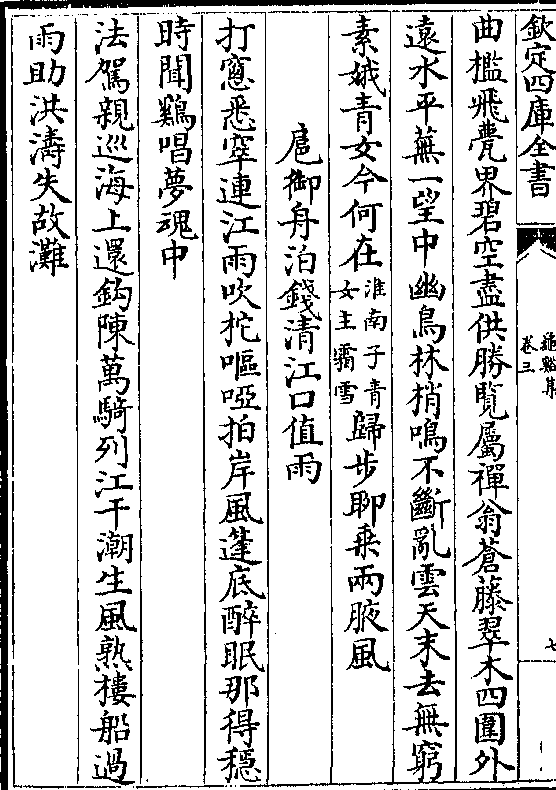 欽定四庫全書
龜谿集
卷三
七
曲檻飛甍界碧空盡供勝覽屬禪翁蒼藤翠木四圍外
遠水平蕪一望中幽鳥林梢鳴不斷亂雲天末去無窮
素娥青女今何在淮南子青女主霜雪歸步聊乗兩腋風
扈御舟泊錢清江口值雨
打窻悉窣連江雨吹柁嘔啞拍岸風篷底醉眠那得穩
時聞鷄唱夢魂中
法駕親巡海上還鈎陳萬騎列江干潮生風熟樓船過
雨助洪濤失故灘